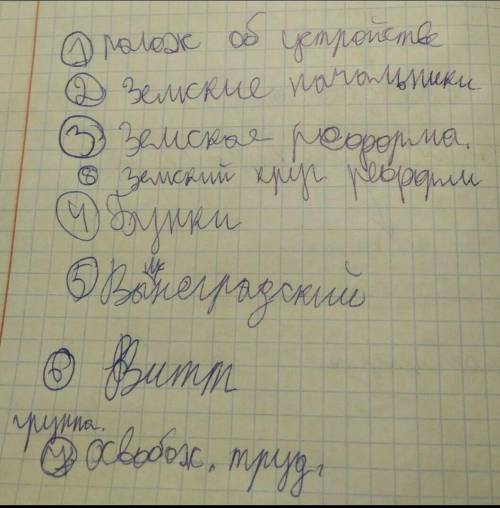 ① полож об устройстве
② Земские начальники
③ Земская реформа.
⑧ Земский круг реформы
④ Бунки
⑤ Вышнеградский
⑥ Витт
группа.
⑦ освобож. труд.